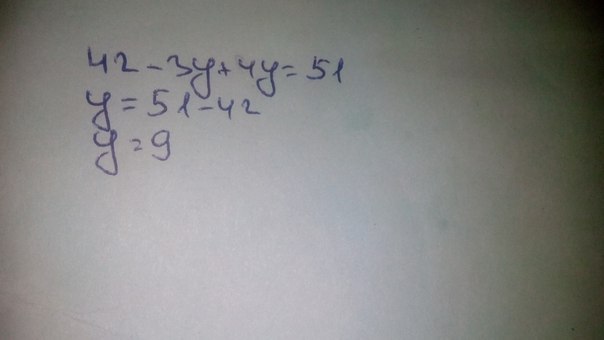 42 - 3y + 4y = 51
y = 51 - 42
y = 9